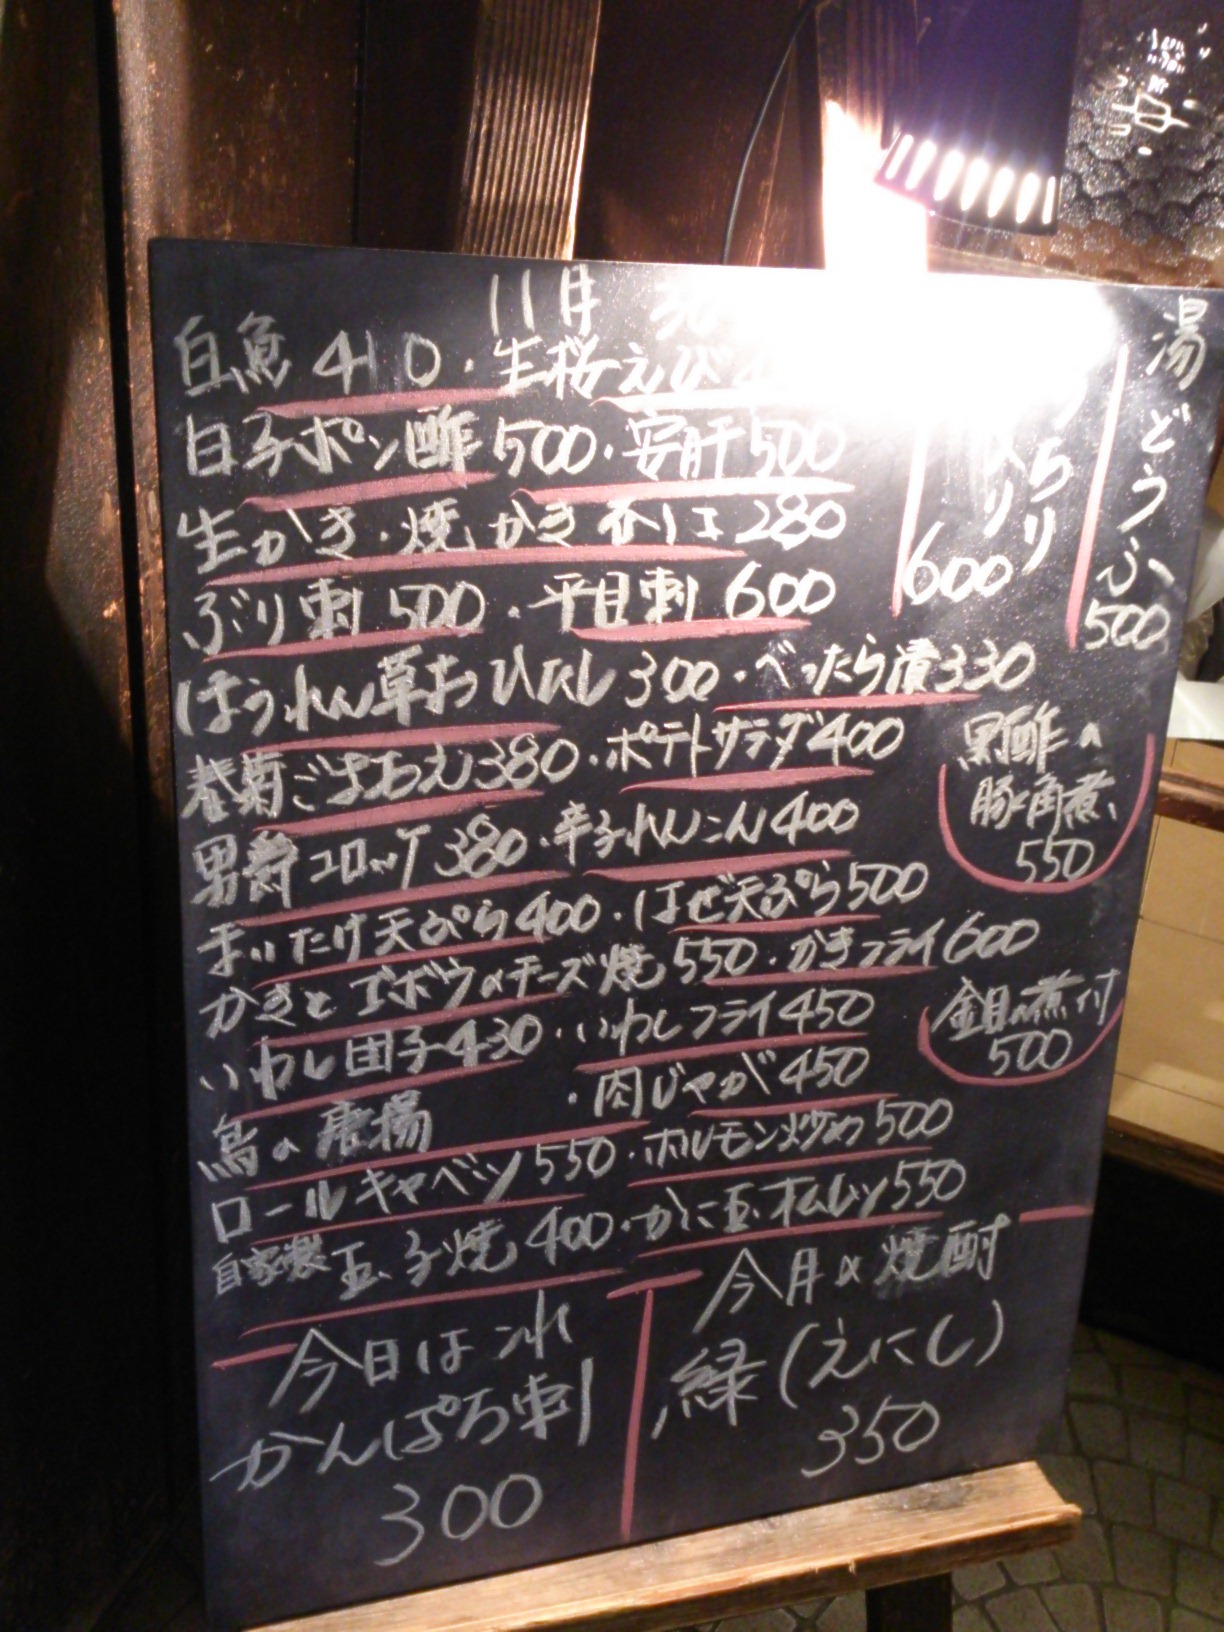 11月 30
白魚 410・生桜えび 4
白子ポン酢 500・安肝 500
生かき・焼かき 各々は 280
ぶり刺 500・平目刺 600
ほうれん草おひたし 300・べったら漬 330
春菊ごまあえ 380・ポテトサラダ 400
男爵コロッケ 380・辛子れんこん 400
まいたけ天ぷら 400・はぜ天ぷら 500
かきとゴボウのチーズ焼 550・かきフライ 600
いわし団子 430・いわしフライ 450
鳥の唐揚 ・肉じゃが 450
ロールキャベツ 550・ホルモン炒め 500
自家製 玉子焼 400・かに玉オムレツ 550
ちり
600
湯どうふ
500
黒酢の
豚角煮
550
金目の煮付
500
今日はこれ
かんぱち刺
300
今月の焼酎
縁(えにし)
350